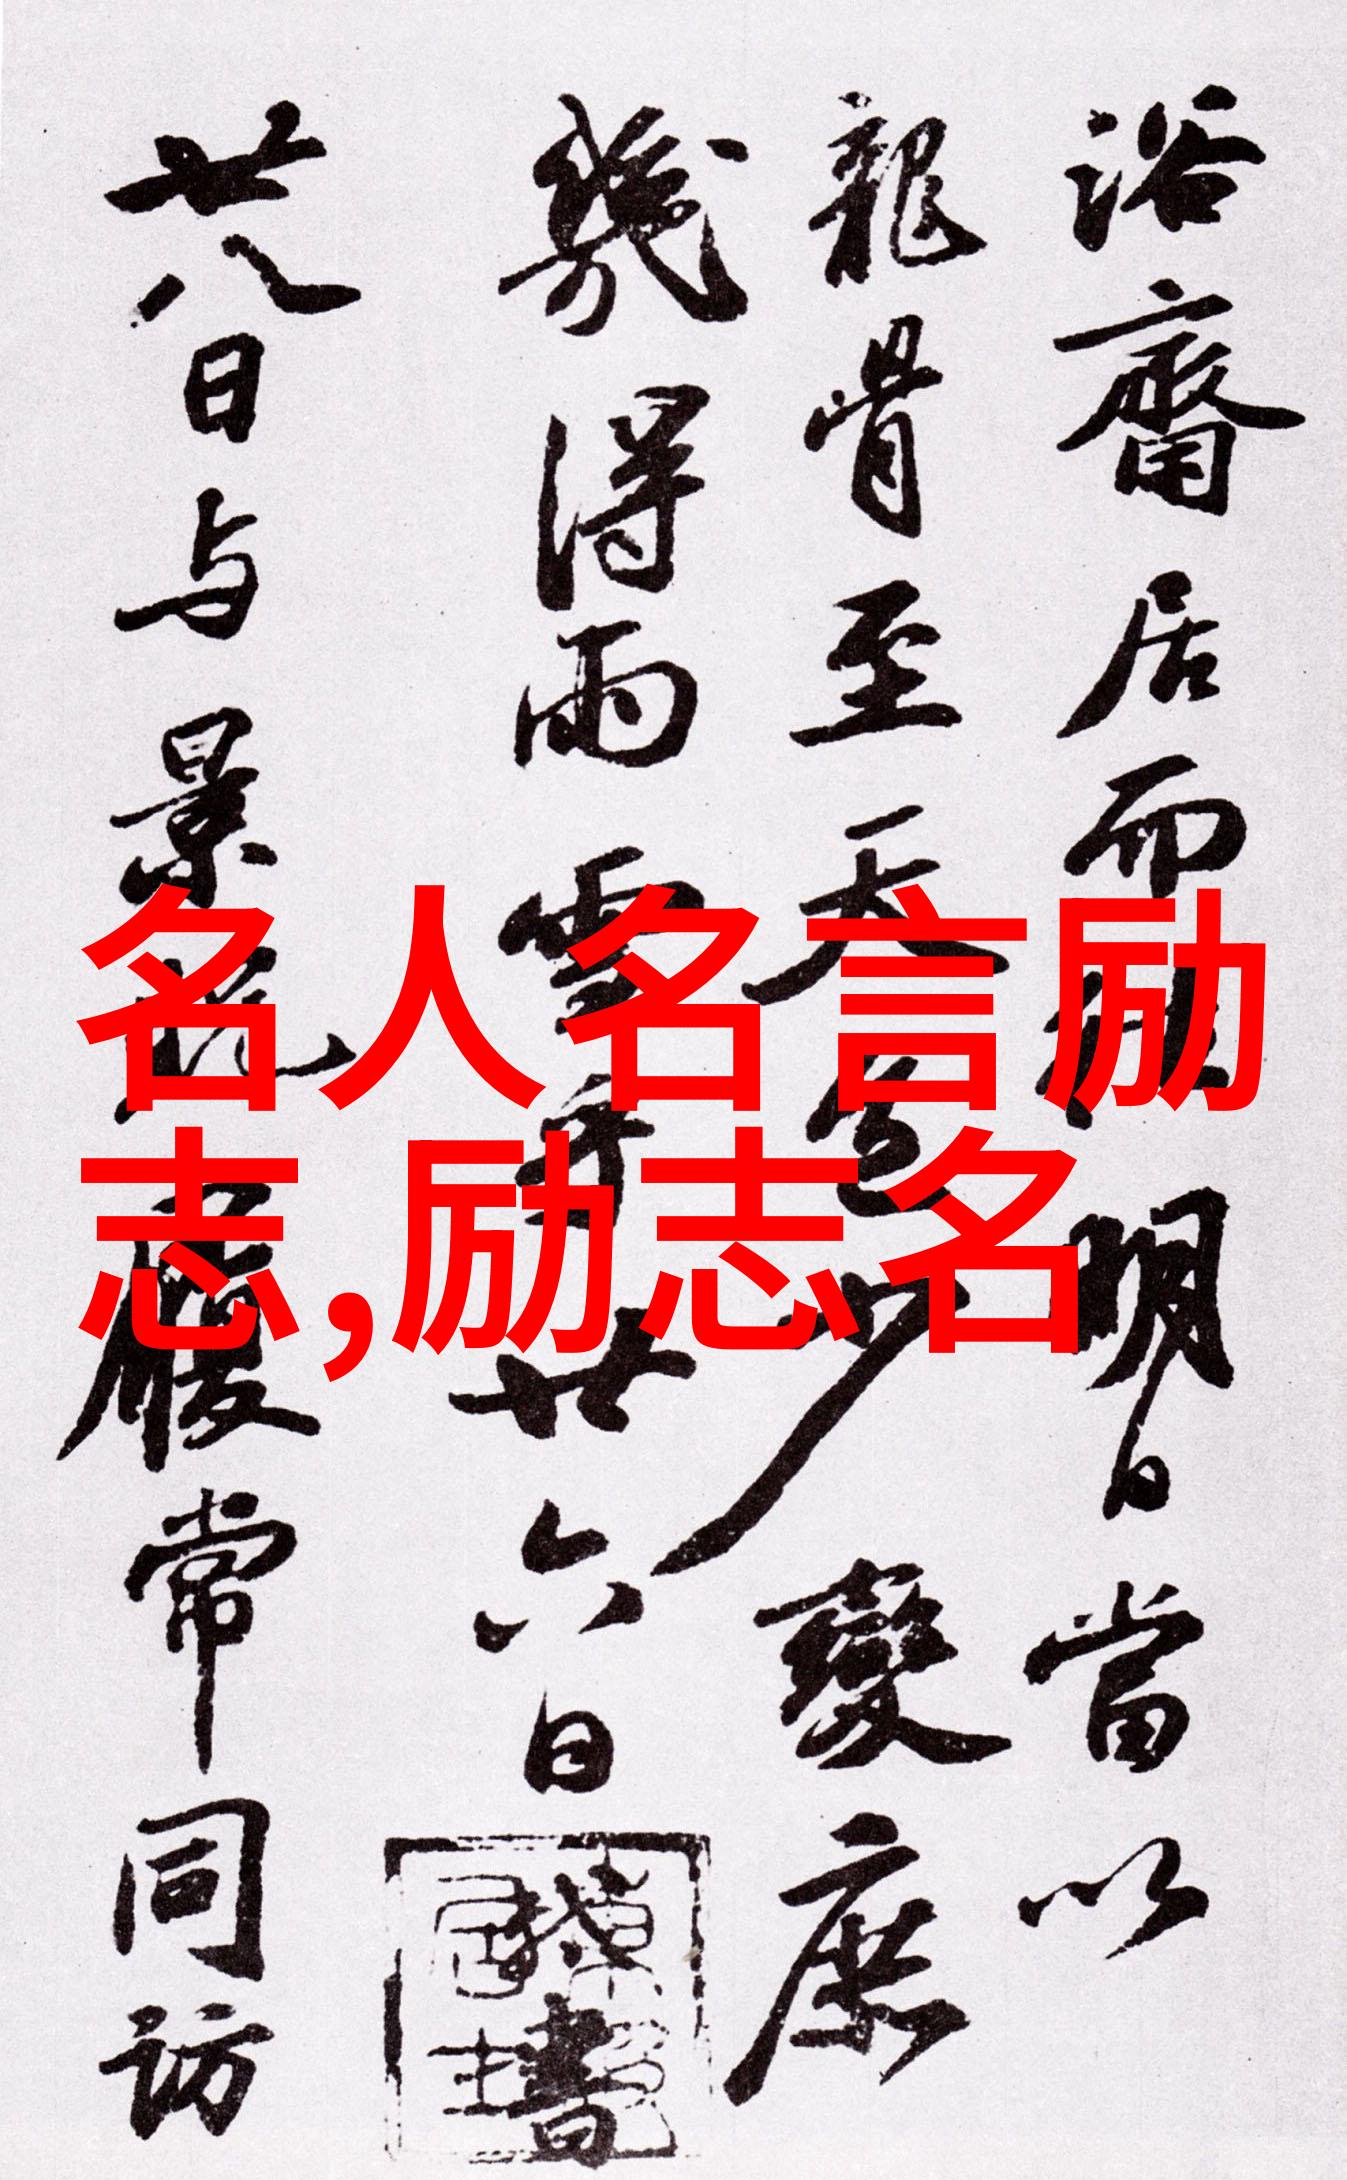 浴齋居而
明日當以
龍骨至天
少變庶
幾得雨雪
廿六日
書
廿八日与景
履常同访
名人名言励
志,励志名